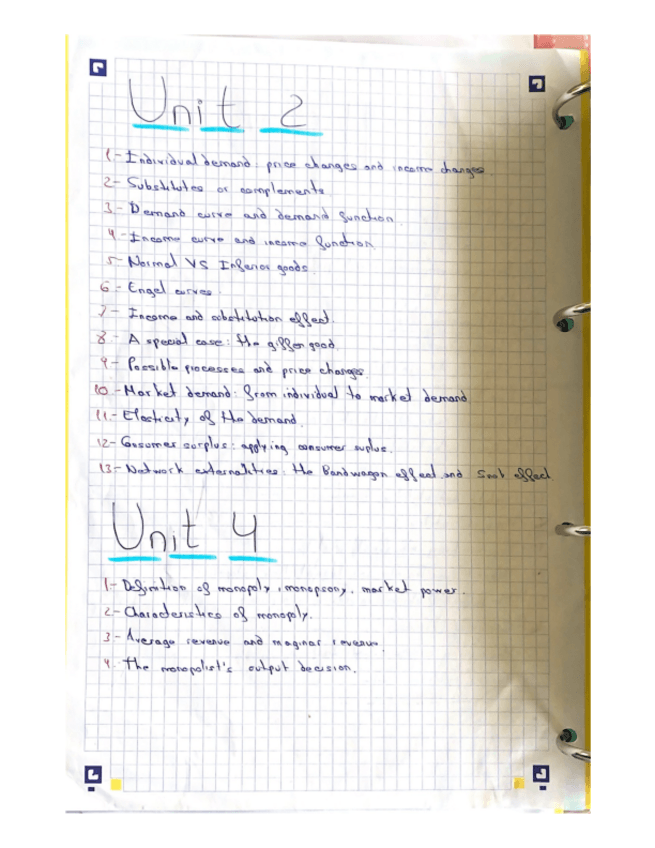 Unit 2
1- Individual demand: price changes and income changes.
2- Substitutes or complements
3- Demand curve and demand function.
4- Income curve and income function.
5- Normal VS Inferior goods.
6- Engel curves.
7- Income and substitution effect.
8- A special case: the giffen good.
9- Possible processes and price changes.
10- Market demand: from individual to market demand
11- Elasticity of the demand.
12- Cosumer surplus: applying consumer suplus.
13- Network externalities: the Bandwagon effect and Snob effect.
Unit 4
1- Definition of monopoly, monopsony, market power.
2- Characteristics of monopoly.
3- Average revenue and maginal revenue.
4- The monopolist's output decision.